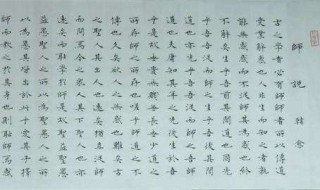 師說 韓愈
古之學者必有師師者所以傳道
受業解惑也人非生而知之者孰
能無惑惑而不從師其為惑也終
不解矣生乎吾前其聞道也固先
乎吾吾從而師之生乎吾後其聞
道也亦先乎吾吾從而師之吾師
道也夫庸知其年之先後生於吾
乎是故無貴無賤無長無少道之
所存師之所存也嗟乎師道之不
傳也久矣欲人之無惑也難矣古
之聖人其出人也遠矣猶且從師
而問焉今之眾人其下聖人也亦
遠矣而恥學於師是故聖益聖愚
益愚聖人之所以為聖愚人之所
以為愚其皆出於此乎愛其子擇
師而教之於其身也則恥師焉惑